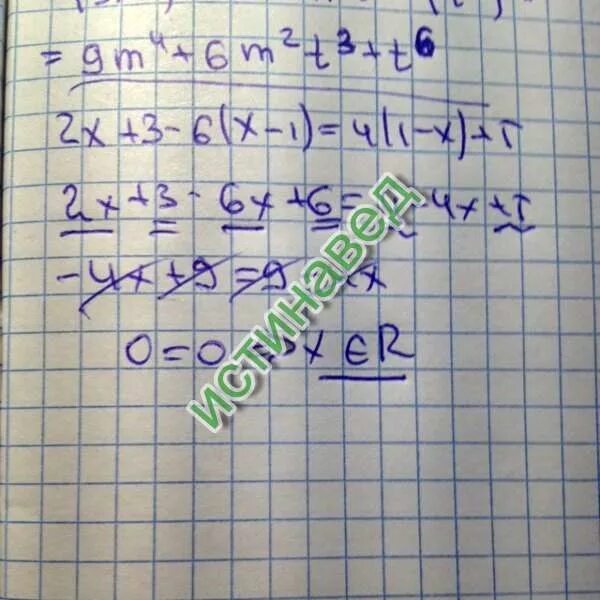 = 9m⁴ + 6m²t³ + t⁶
2x + 3 - 6(x - 1) = 4(1 - x) + 5
2x + 3 - 6x + 6 = 4 - 4x + 5
-4x + 9 = 9 - 4x
0 = 0 => x ∈ R
ИСТИНАВЕД